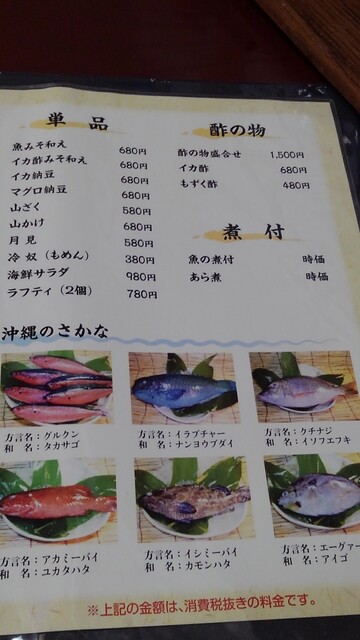 単品
魚みそ和え 680円
イカ酢みそ和え 680円
イカ納豆 680円
マグロ納豆 680円
山ざく 580円
山かけ 680円
月見 580円
冷奴(もめん) 380円
海鮮サラダ 980円
ラフティ(2個) 780円
酢の物
酢の物盛合せ 1,500円
イカ酢 680円
もずく酢 480円
煮付
魚の煮付 時価
あら煮 時価
沖縄のさかな
方言名:グルクン
和 名:タカサゴ
方言名:イラブチャー
和 名:ナンヨウブダイ
方言名:クチナジ
和 名:イソフエフキ
方言名:アカミーバイ
和 名:ユカタハタ
方言名:イシミーバイ
和 名:カモンハタ
方言名:エーグァー
和 名:アイゴ
※上記の金額は、消費税抜きの料金です。